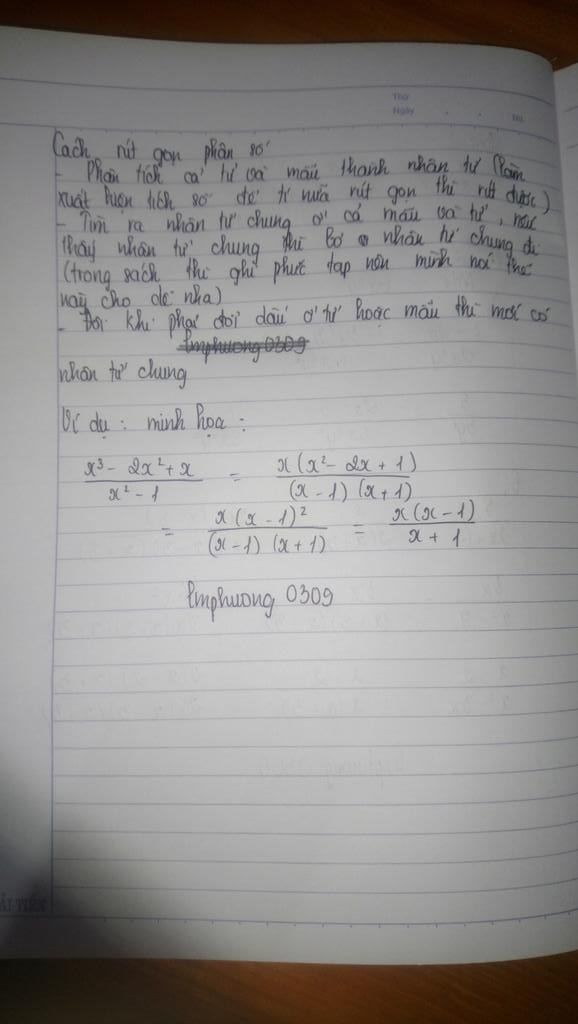 Thứ
Ngày
Cách rút gọn phân số
- Phân tích cả tử và mẫu thành nhân tử (làm
xuất hiện tích số để tí nữa rút gọn thì rút được)
- Tìm ra nhân tử chung ở cả mẫu và tử, nếu
thấy nhân tử chung thì bỏ nhân tử chung đi
(trong sách thì ghi phức tạp nên mình nói thế
này cho dễ nha)
- Đôi khi phải đổi dấu ở tử hoặc mẫu thì mới có
lmphuong 0309
nhân tử chung
Ví dụ : minh họa :
x³ - 2x² + x / x² - 1 = x(x² - 2x + 1) / (x - 1) (x + 1)
= x(x - 1)² / (x - 1) (x + 1) = x(x - 1) / x + 1
lmphuong 0309